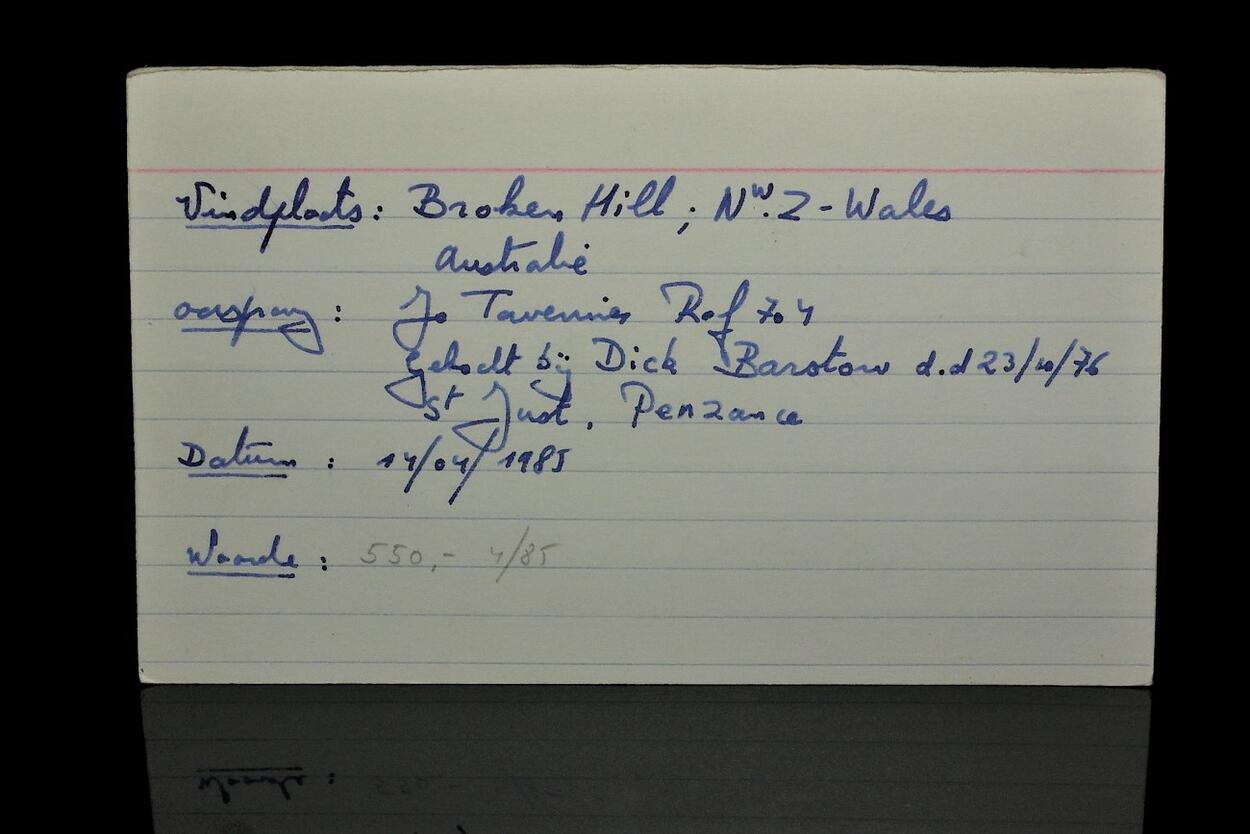 Vindplaats: Broken Hill; Nw. Z-Wales
Australië
oorsprong: Jo Tavernier Ref 704
gekocht bij Dick Barstow d.d 23/10/76
St Just, Penzance
Datum: 14/04/1985
Waarde: 550,- 4/85